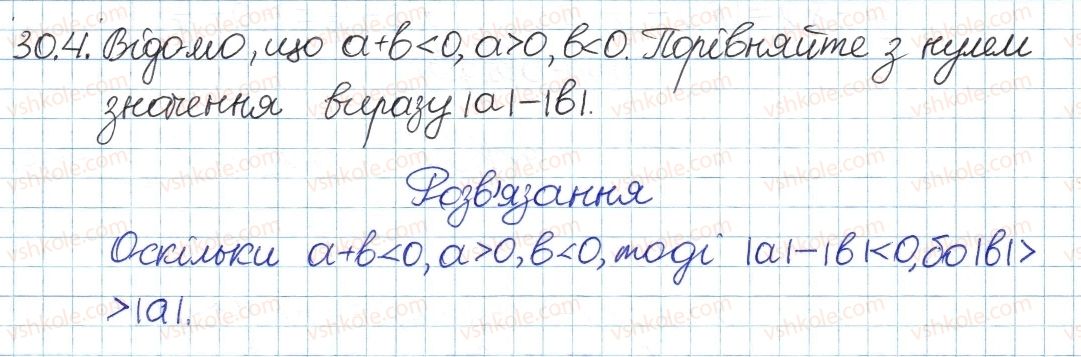 30.4. Відомо, що a+b<0, a>0, b<0. Порівняйте з нулем
значення виразу |a|-|b|.
Розв'язання
Оскільки a+b<0, a>0, b<0, тоді |a|-|b|<0, бо |b|>
>|a|.